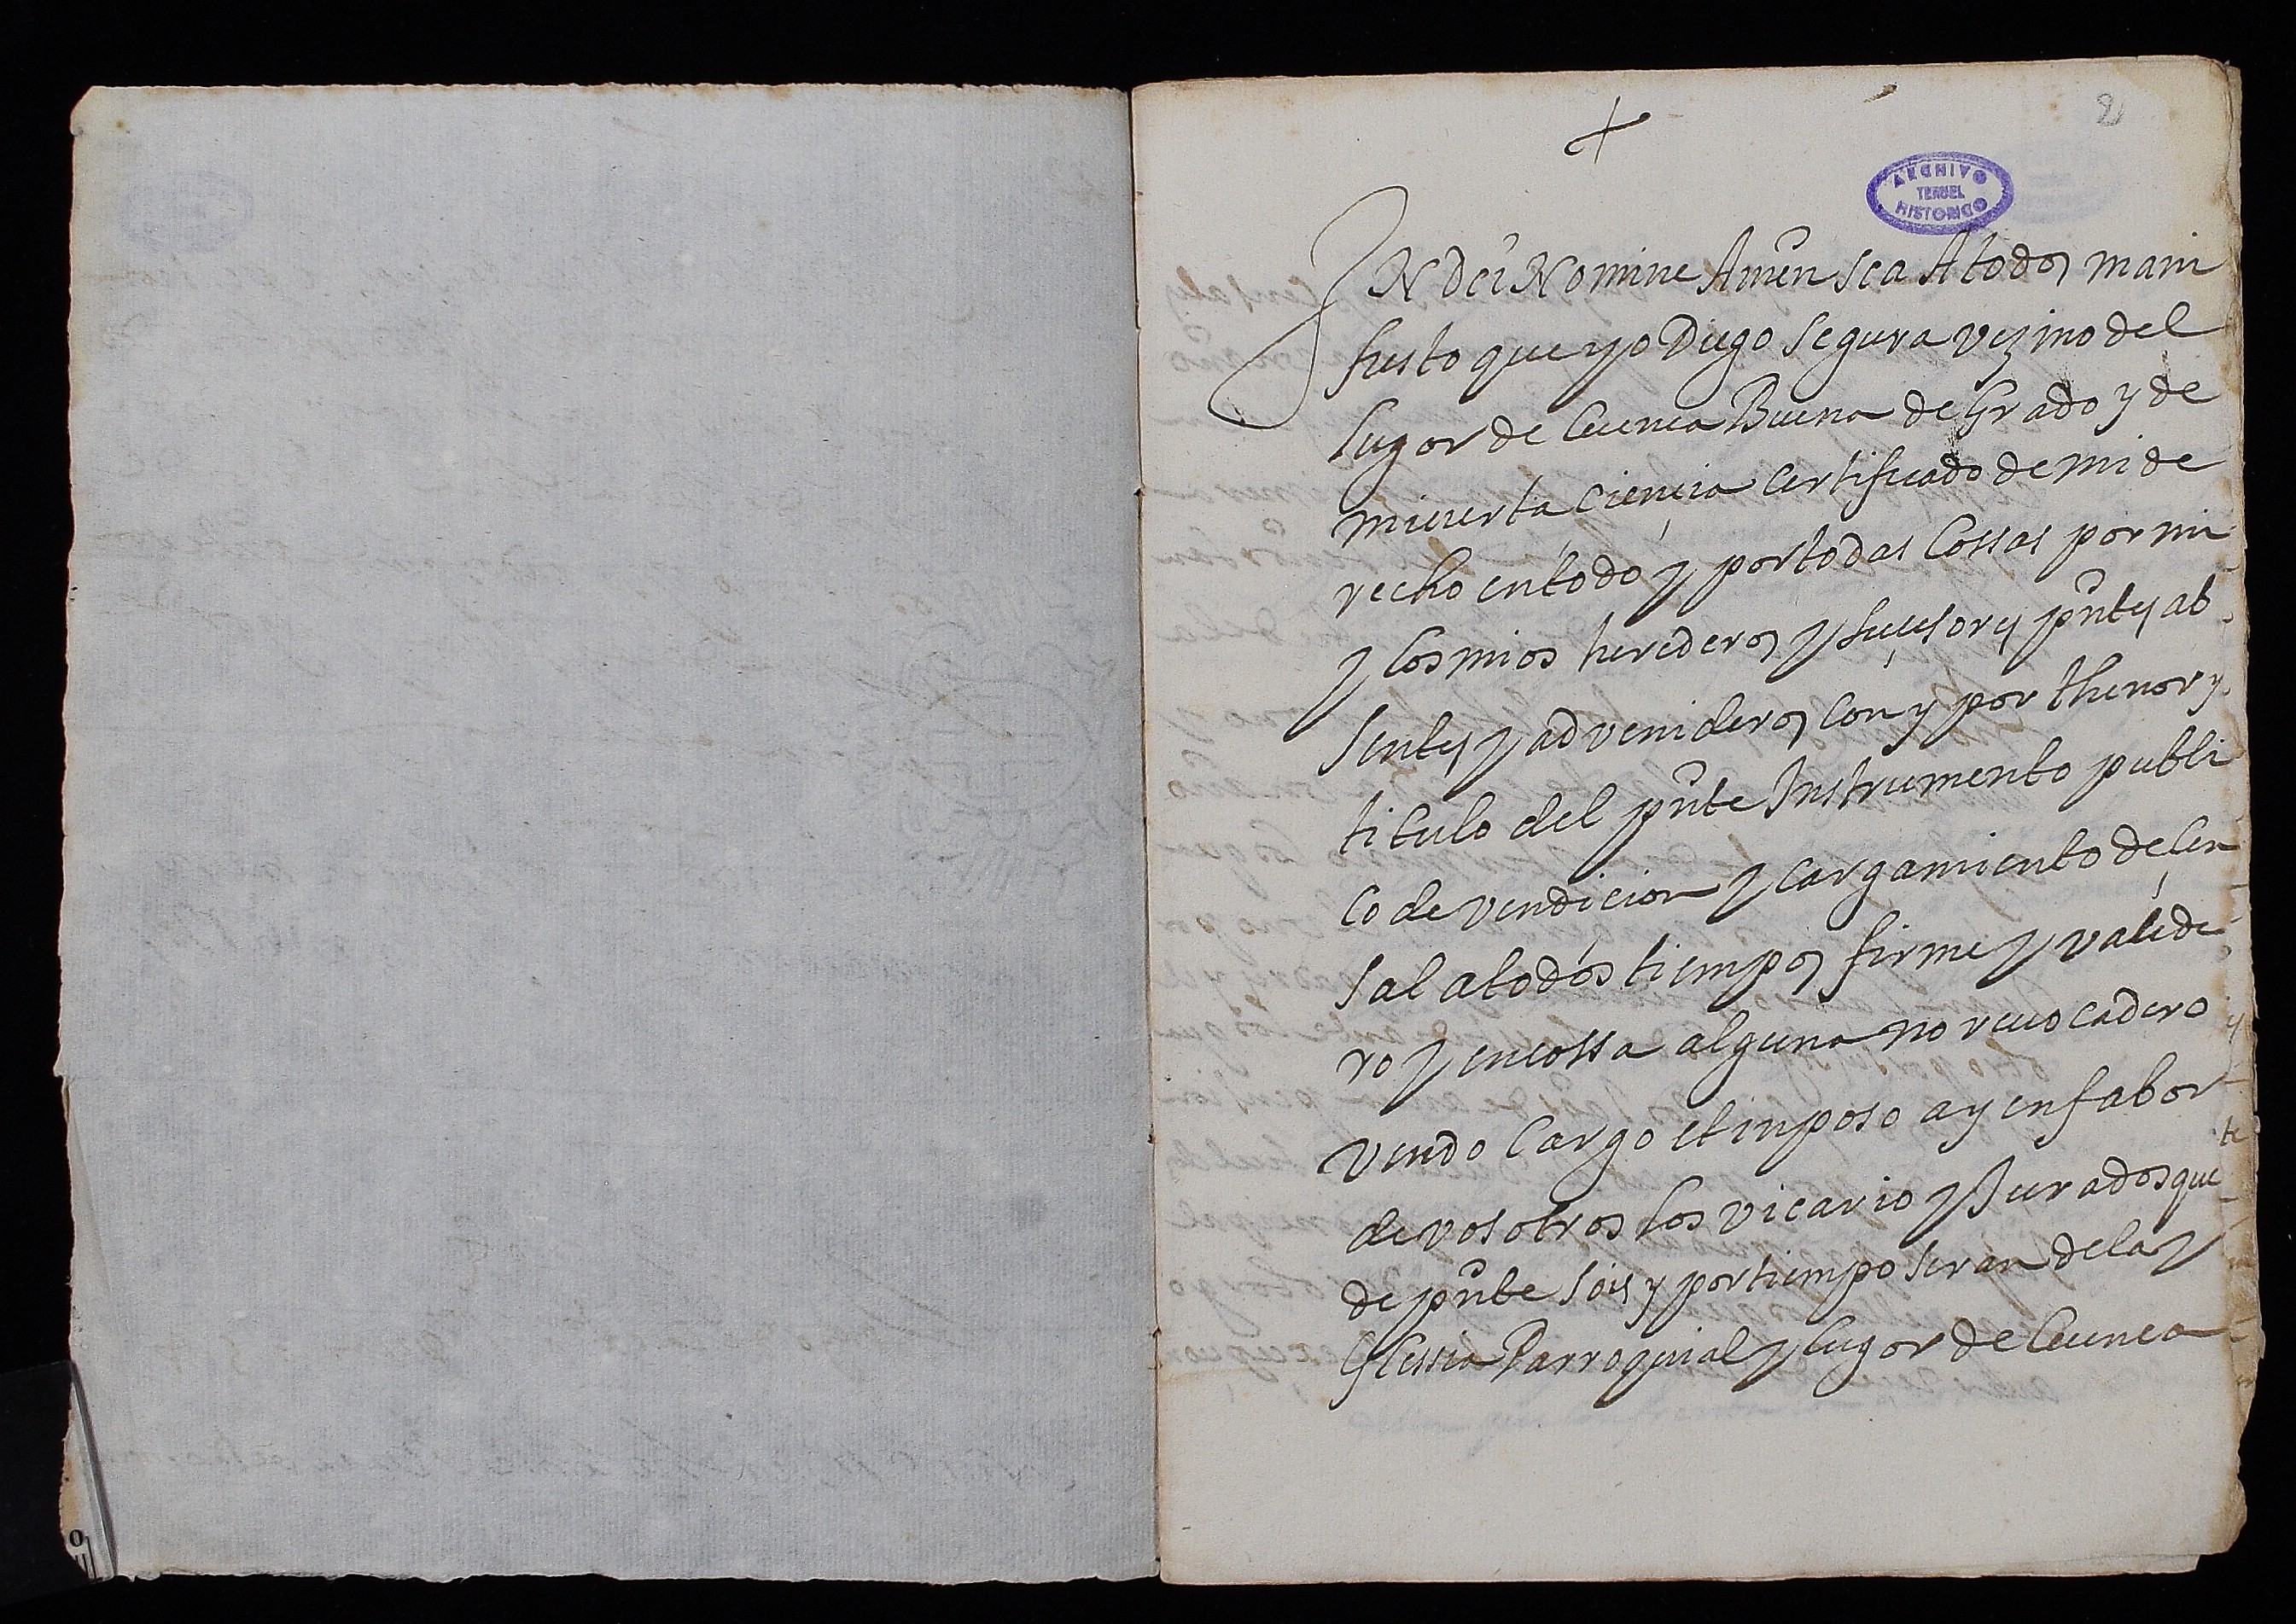 2
ARCHIVO
TERUEL
HISTORICO
IN Dei Nomine Amen Sea A todos mani
fiesto que yo Diego Segura vezino del
lugar de Cuenca Buena de Grado y de
mi cierta ciençia certificado de mi de
recho en todo y por todas Cossas por mi
y los mios herederos y suçesores pñtes ab
sentes y advenideros con y por thenor y
titulo del pñte Instrumento publi
co de vendicion y cargamiento de çen
sal a todos tiempos firme y valede
ro y en cossa alguna no reuocadero
Vendo Cargo et imposo a y en fabor
de vosotros los vicario y Jurados que
de pñte sois y por tiempo seran de la y
Glessia Parroquial y lugar de Cuenca